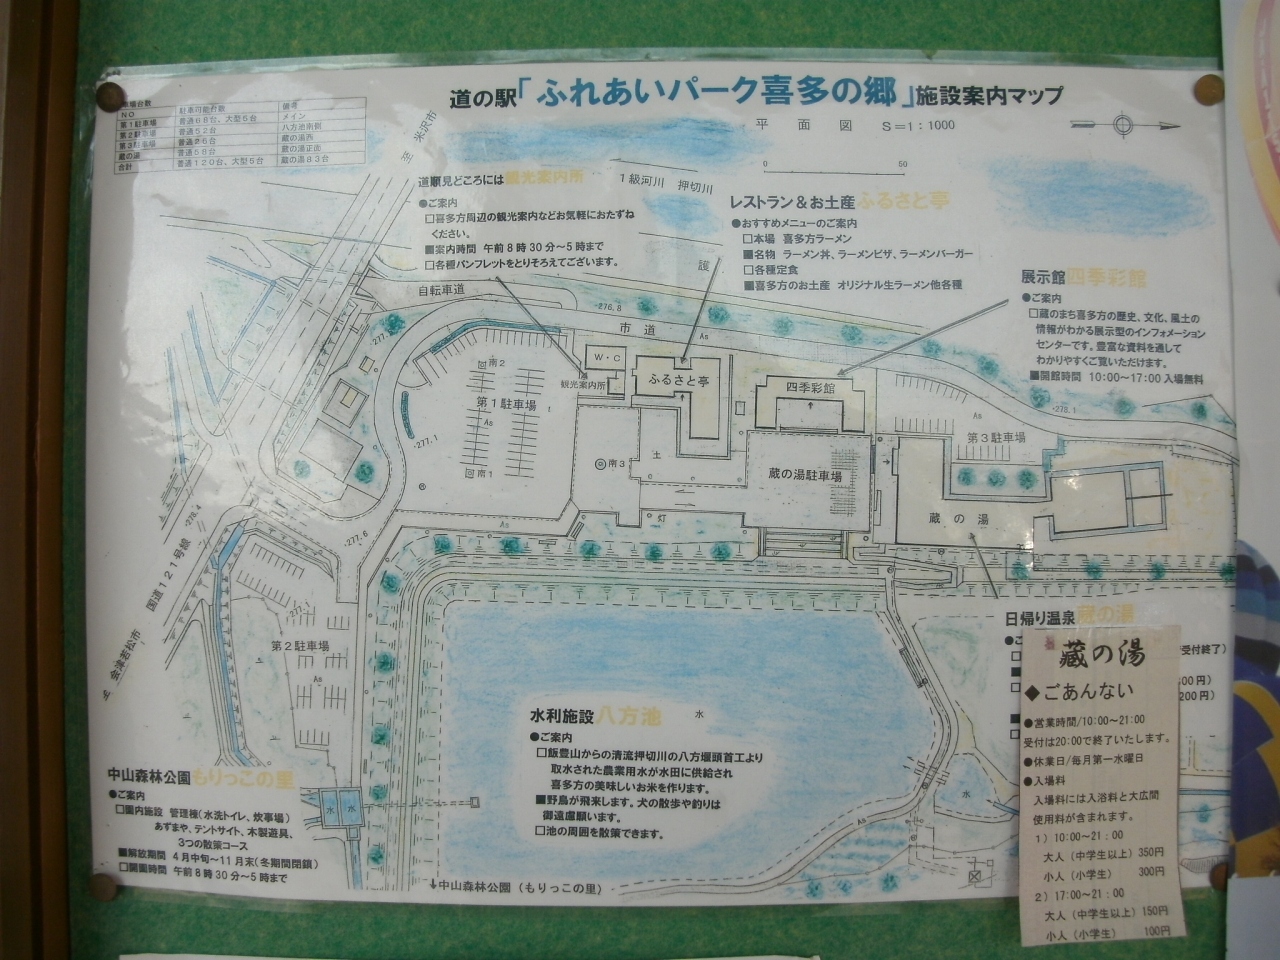 道の駅「ふれあいパーク喜多の郷」施設案内マップ
平面図 S=1:1000
0 50
車場台数
NO 駐車可能台数 備考
第1駐車場 普通68台、大型5台 メイン
第2駐車場 普通52台 八方池南側
第3駐車場 普通26台 蔵の湯西
蔵の湯 普通58台 蔵の湯正面
合計 普通120台、大型5台 蔵の湯83台
至 米沢市
道順見どころには観光案内所
●ご案内
□喜多方周辺の観光案内などお気軽におたずね
ください。
■案内時間 午前8時30分~5時まで
□各種パンフレットをとりそろえてございます。
1級河川 押切川
護
レストラン&お土産ふるさと亭
●おすすめメニューのご案内
□本場 喜多方ラーメン
■名物 ラーメン丼、ラーメンピザ、ラーメンバーガー
□各種定食
■喜多方のお土産 オリジナル生ラーメン他各種
展示館四季彩館
●ご案内
□蔵のまち喜多方の歴史、文化、風土の
情報がわかる展示型のインフォメーション
センターです。豊富な資料を通して
わかりやすくご覧いただけます。
■開館時間 10:00~17:00 入場無料
自転車道
市道
-276.8
As
-278.1
W・C
観光案内所
ふるさと亭
四季彩館
南2
第1駐車場
As
南1
-277.1
南3
土
蔵の湯駐車場
第3駐車場
As
蔵の湯
灯
As
-277.6
-276.4
国道121号線
至 会津若松市
第2駐車場
As
日帰り温泉蔵の湯
受付終了)
00円)
200円)
水利施設八方池
水
●ご案内
□飯豊山からの清流押切川の八方堰頭首工より
取水された農業用水が水田に供給され
喜多方の美味しいお米を作ります。
■野鳥が飛来します。犬の散歩や釣りは
御遠慮願います。
□池の周囲を散策できます。
水
As
中山森林公園もりっこの里
●ご案内
□園内施設 管理棟(水洗トイレ、炊事場)
あずまや、テントサイト、木製遊具、
3つの散策コース
■解放期間 4月中旬~11月末(冬期間閉鎖)
□開園時間 午前8時30分~5時まで
水 水
↓中山森林公園(もりっこの里)
蔵の湯
◆ごあんない
●営業時間/10:00~21:00
受付は20:00で終了いたします。
●休業日/毎月第一水曜日
●入場料
入場料には入浴料と大広間
使用料が含まれます。
1)10:00~21:00
大人(中学生以上)350円
小人(小学生) 300円
2)17:00~21:00
大人(中学生以上)150円
小人(小学生) 100円